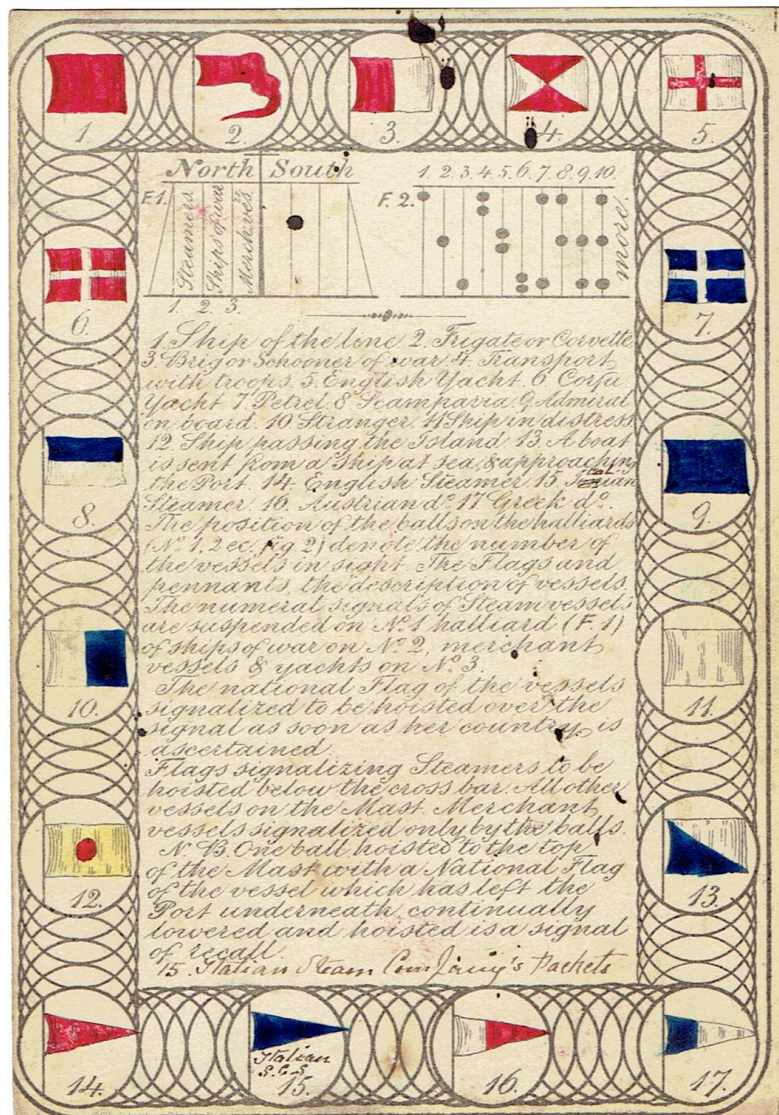 1. 2. 3. 4. 5.
North South
1. 2. 3. 4. 5. 6. 7. 8. 9. 10.
F. 1. Steamers Ships of war Merch. ves
F. 2. more.
1. 2. 3.
6. 7.
1. Ship of the line 2. Frigate or Corvette
3. Brig or Schooner of war 4. Transport
with troops. 5. English Yacht. 6 Corfu
Yacht 7. Petrel 8. Scamparia 9. Admiral
on board. 10. Stranger. 11 Ship in distress
12. Ship passing the Island 13. A boat
is sent from a Ship at sea, & approaching
the Port. 14. English Steamer. 15.
Steamer. 16. Austrian do. 17 Greek do.
The position of the balls on the halliards
(No. 1, 2 ec. fig 2) denote the number of
the vessels in sight. The Flags and
pennants, the description of vessels.
The numeral signals of Steam vessels
are suspended on No. 1 halliard (F. 1)
of ships of war on No. 2, merchant
vessels & yachts on No. 3.
The national Flag of the vessels
signalized to be hoisted over the
signal as soon as her country is
ascertained.
Flags signalizing Steamers to be
hoisted below the cross bar. All other
vessels on the Mast. Merchant
vessels signalized only by the balls.
N. B. One ball hoisted to the top
of the Mast with a National Flag
of the vessel which has left the
Port underneath continually
lowered and hoisted is a signal
of recall.
15. Italian Steam Company's Packets
8. 9.
10. 11.
12. 13.
14. Italian S.C.S 15. 16. 17.